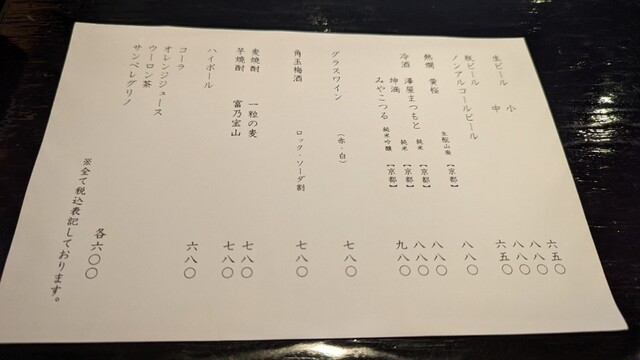 生ビール 小 六五〇
中 八八〇
瓶ビール 八八〇
ノンアルコールビール 六五〇
熱燗 黄桜 生酛山廃 【京都】 八八〇
冷酒 澤屋まつもと 純米 【京都】 八八〇
坤滴 純米 【京都】 八八〇
みやこつる 純米吟醸 【京都】 九八〇
グラスワイン (赤・白) 七八〇
角玉梅酒 ロック・ソーダ割 七八〇
麦焼酎 一粒の麦 七八〇
芋焼酎 富乃宝山 七八〇
ハイボール 六八〇
コーラ
オレンジジュース
ウーロン茶
サンペレグリノ
各六〇〇
※全て税込表記しております。